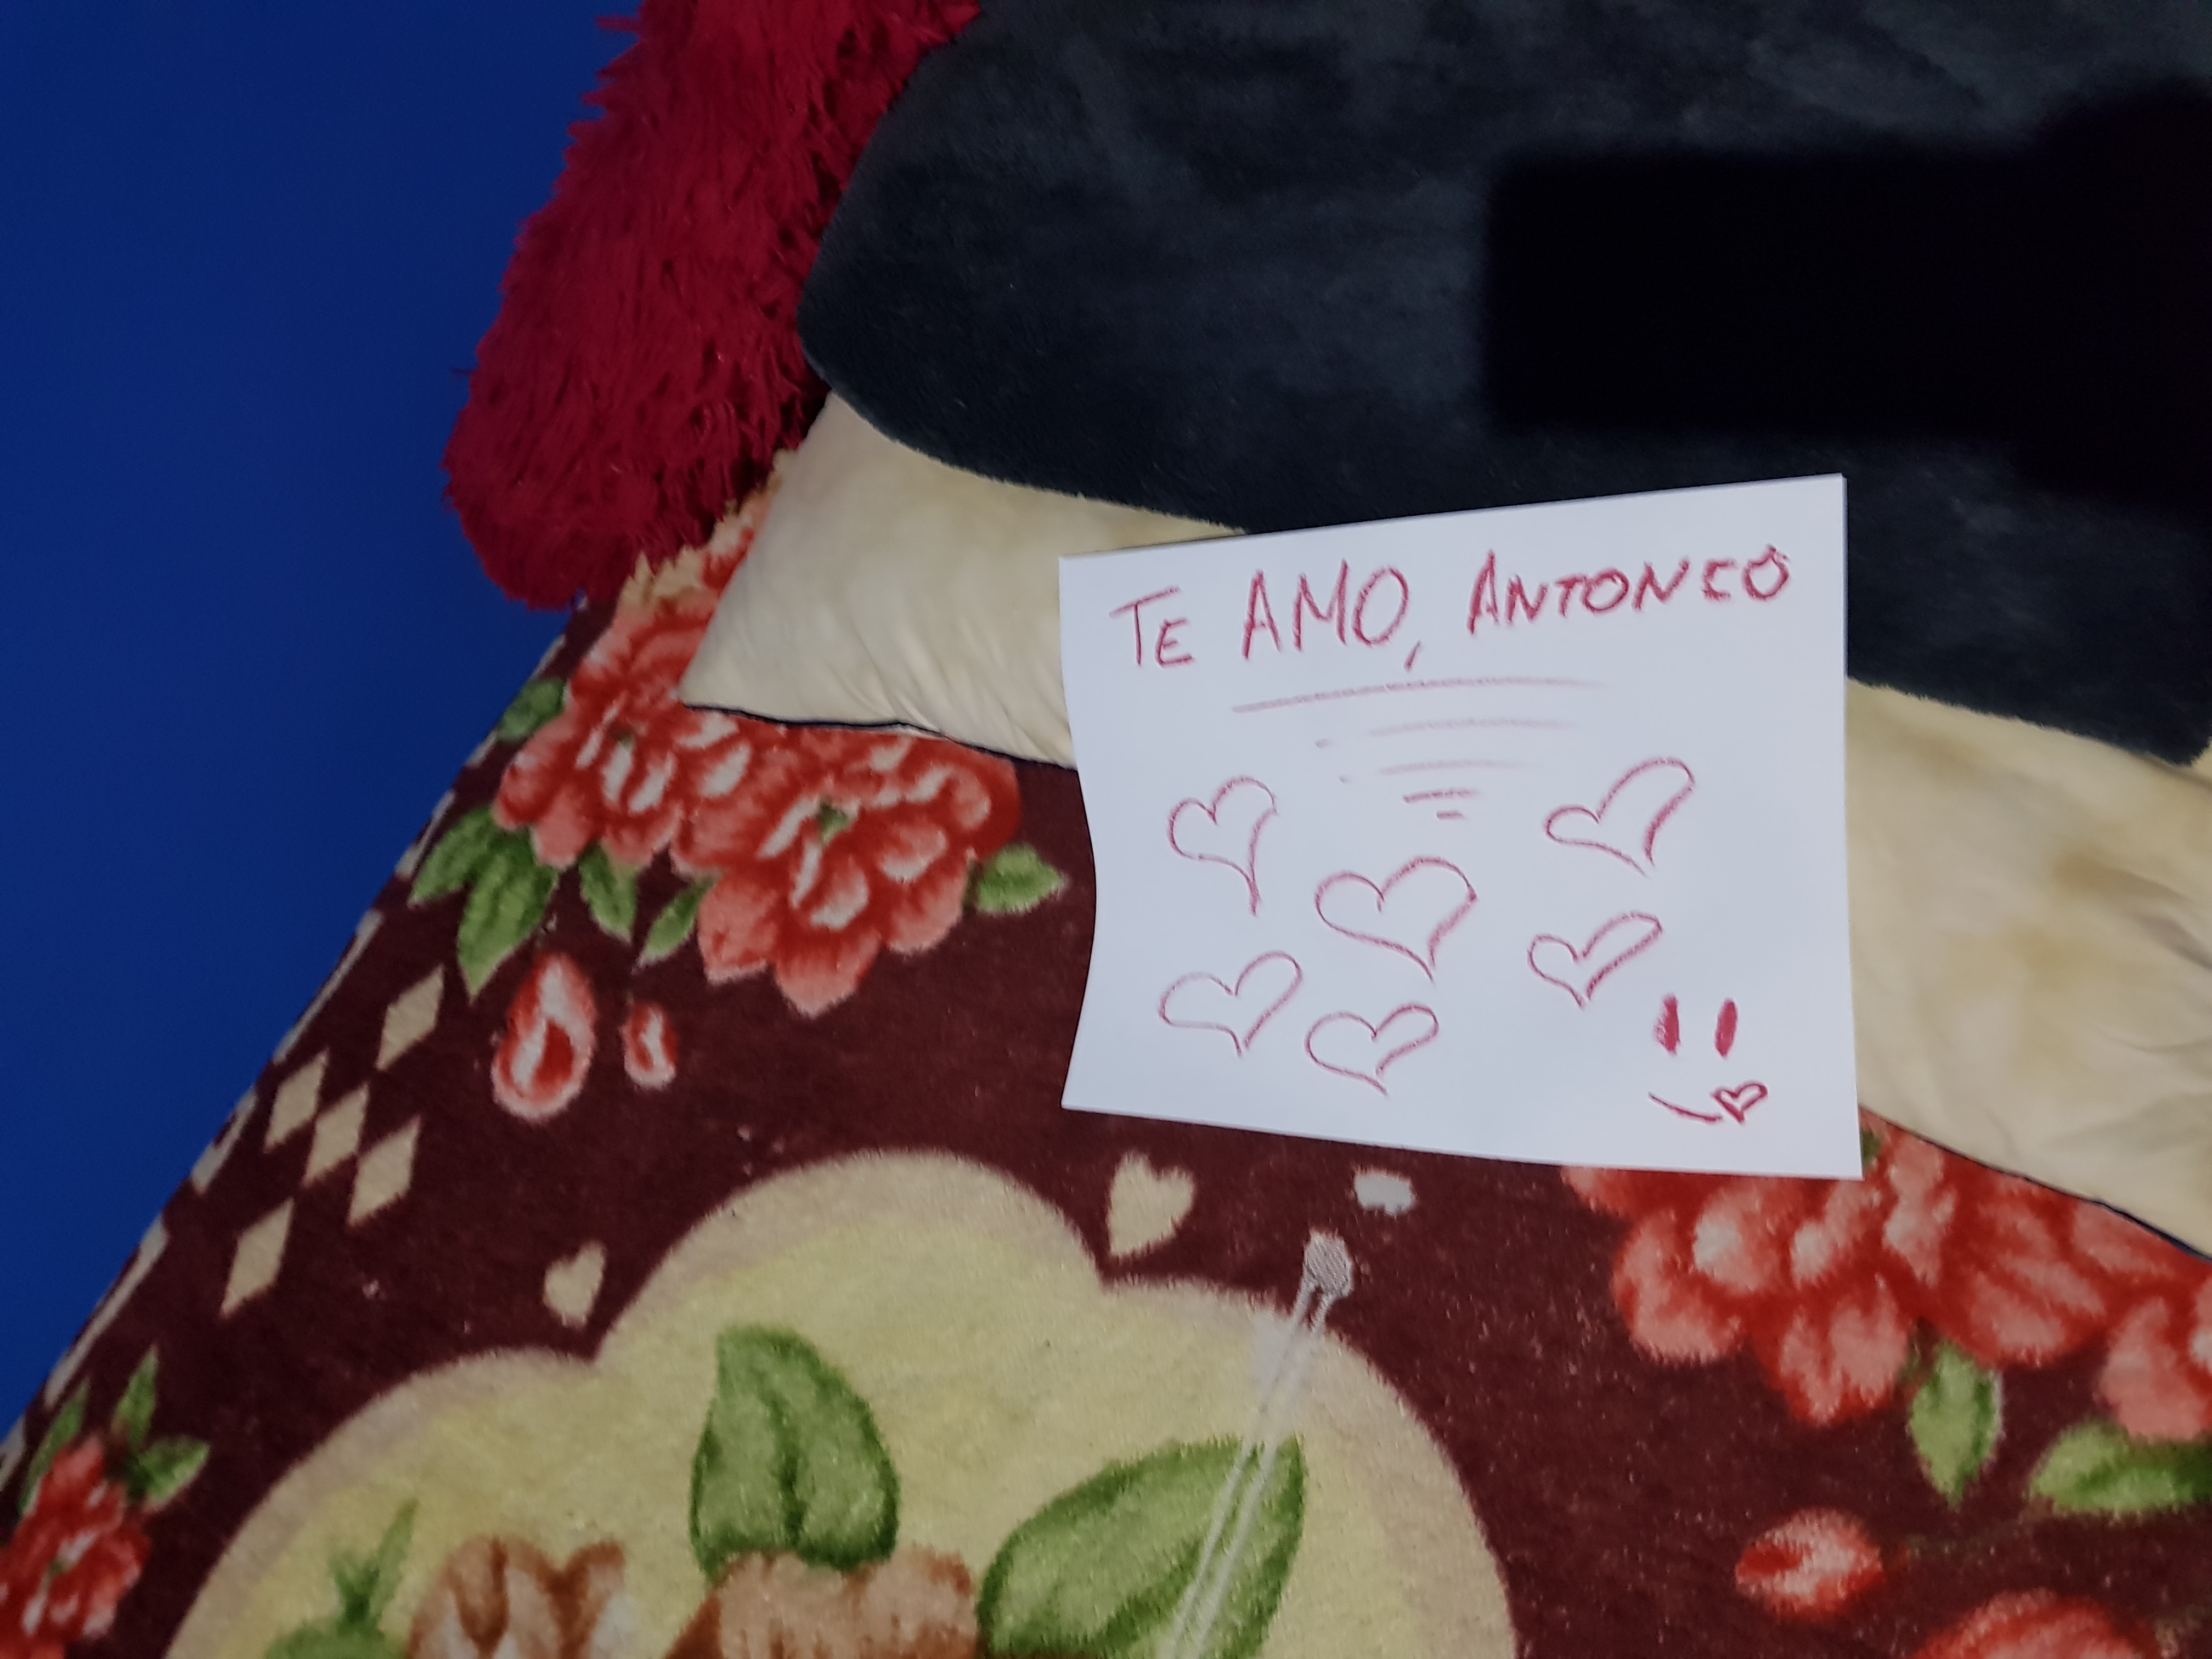 TE AMO, ANTONIO